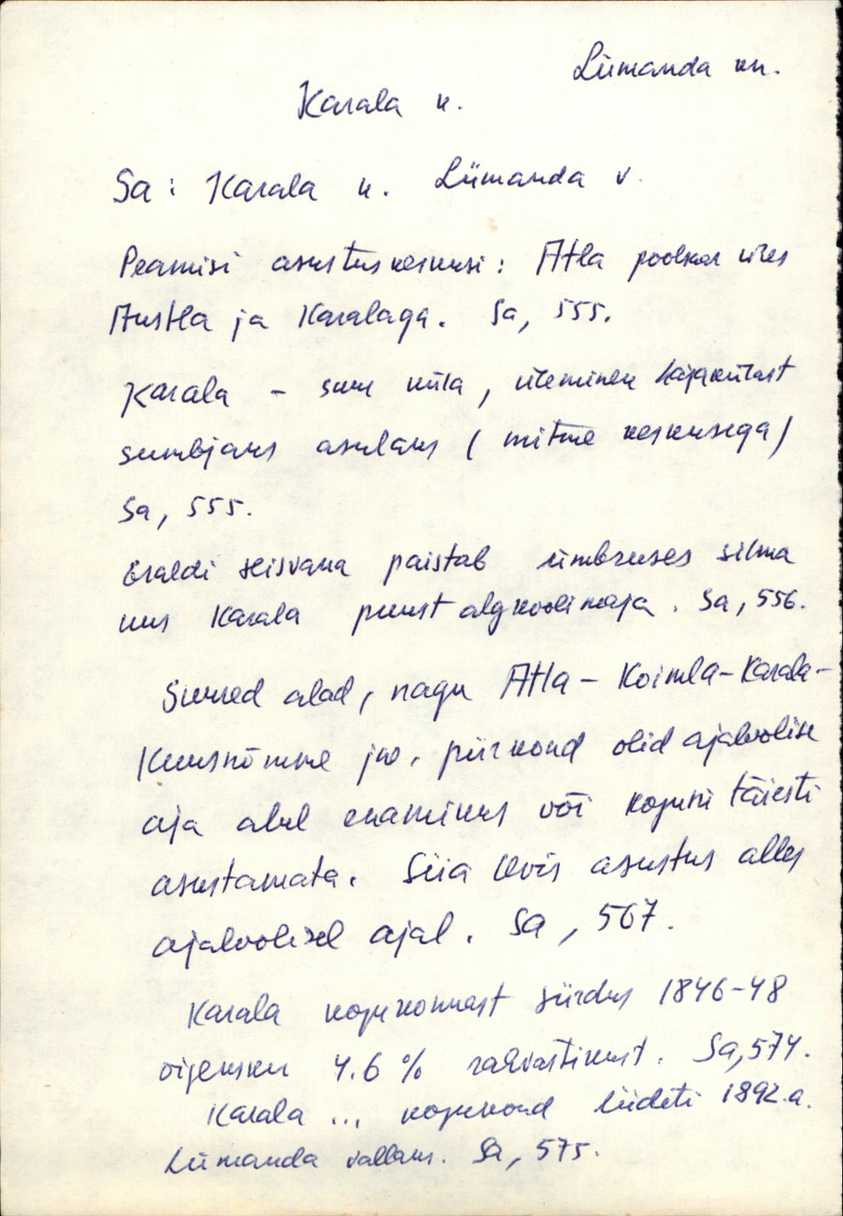 Lümanda kn.
Karala k.
Sa: Karala k. Lümanda v.
Peamisi asustuskeskusi: Atla poolsaar ühes
Austla ja Karalaga. Sa, 555.
Karala - suur küla, üleminek hajakülast
sumbjaks asulaks (mitme keskusega)
Sa, 555.
Eraldi seisvana paistab ümbruses silma
uus Karala puust algkoolimaja. Sa, 556.
Suured alad, nagu Atla - Koimla - Karala -
Kuusnõmme jne. piirkond olid ajaloolise
aja alul enamikus või koguni täiesti
asustamata. Siia levis asustus alles
ajaloolisel ajal. Sa, 567.
Karala kogukonnast siirdus 1846-48
õigeusku 4.6 % rahvastikust. Sa, 574.
Karala ... kogukond liideti 1892.a.
Lümanda vallaks. Sa, 575.